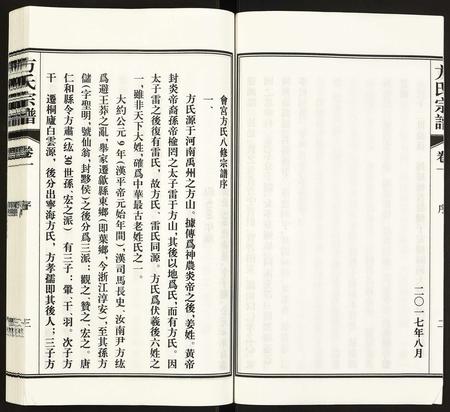 方氏宗譜
卷一
序
二〇一七年八月
會宮方氏八修宗譜序
一、
方氏源于河南禹州之方山。據傳爲神農炎帝之後，姜姓。黄帝
封炎帝裔孫帝榆罔之太子雷于方山，其後以地爲氏，而有方氏。因
太子雷之後復有雷氏，故方氏、雷氏同源。方氏爲伏羲後六姓之
一，雖非天下大姓，確爲中華最古老姓氏之一。
大約公元9年（漢平帝元始年間），漢司馬長史、汝南尹方紘
爲避王莽之亂，舉家遷歙縣東鄉（即葉鄉，今浙江淳安），至其孫方
儲（字聖明，號仙翁，封黟侯）之後分爲三派：觀之、贊之、宏之。唐
仁和縣令方肅（紘30世孫 宏之派） 有三子：暈、干、羽。次子方
干 遷桐廬白雲源， 後分出寧海方氏，方孝孺即其後人；三子方
方氏宗譜
卷一
序
三